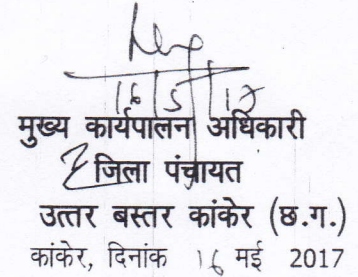 16/5/17
मुख्य कार्यपालन अधिकारी
जिला पंचायत
उत्तर बस्तर कांकेर (छ.ग.)
कांकेर, दिनांक 16 मई 2017